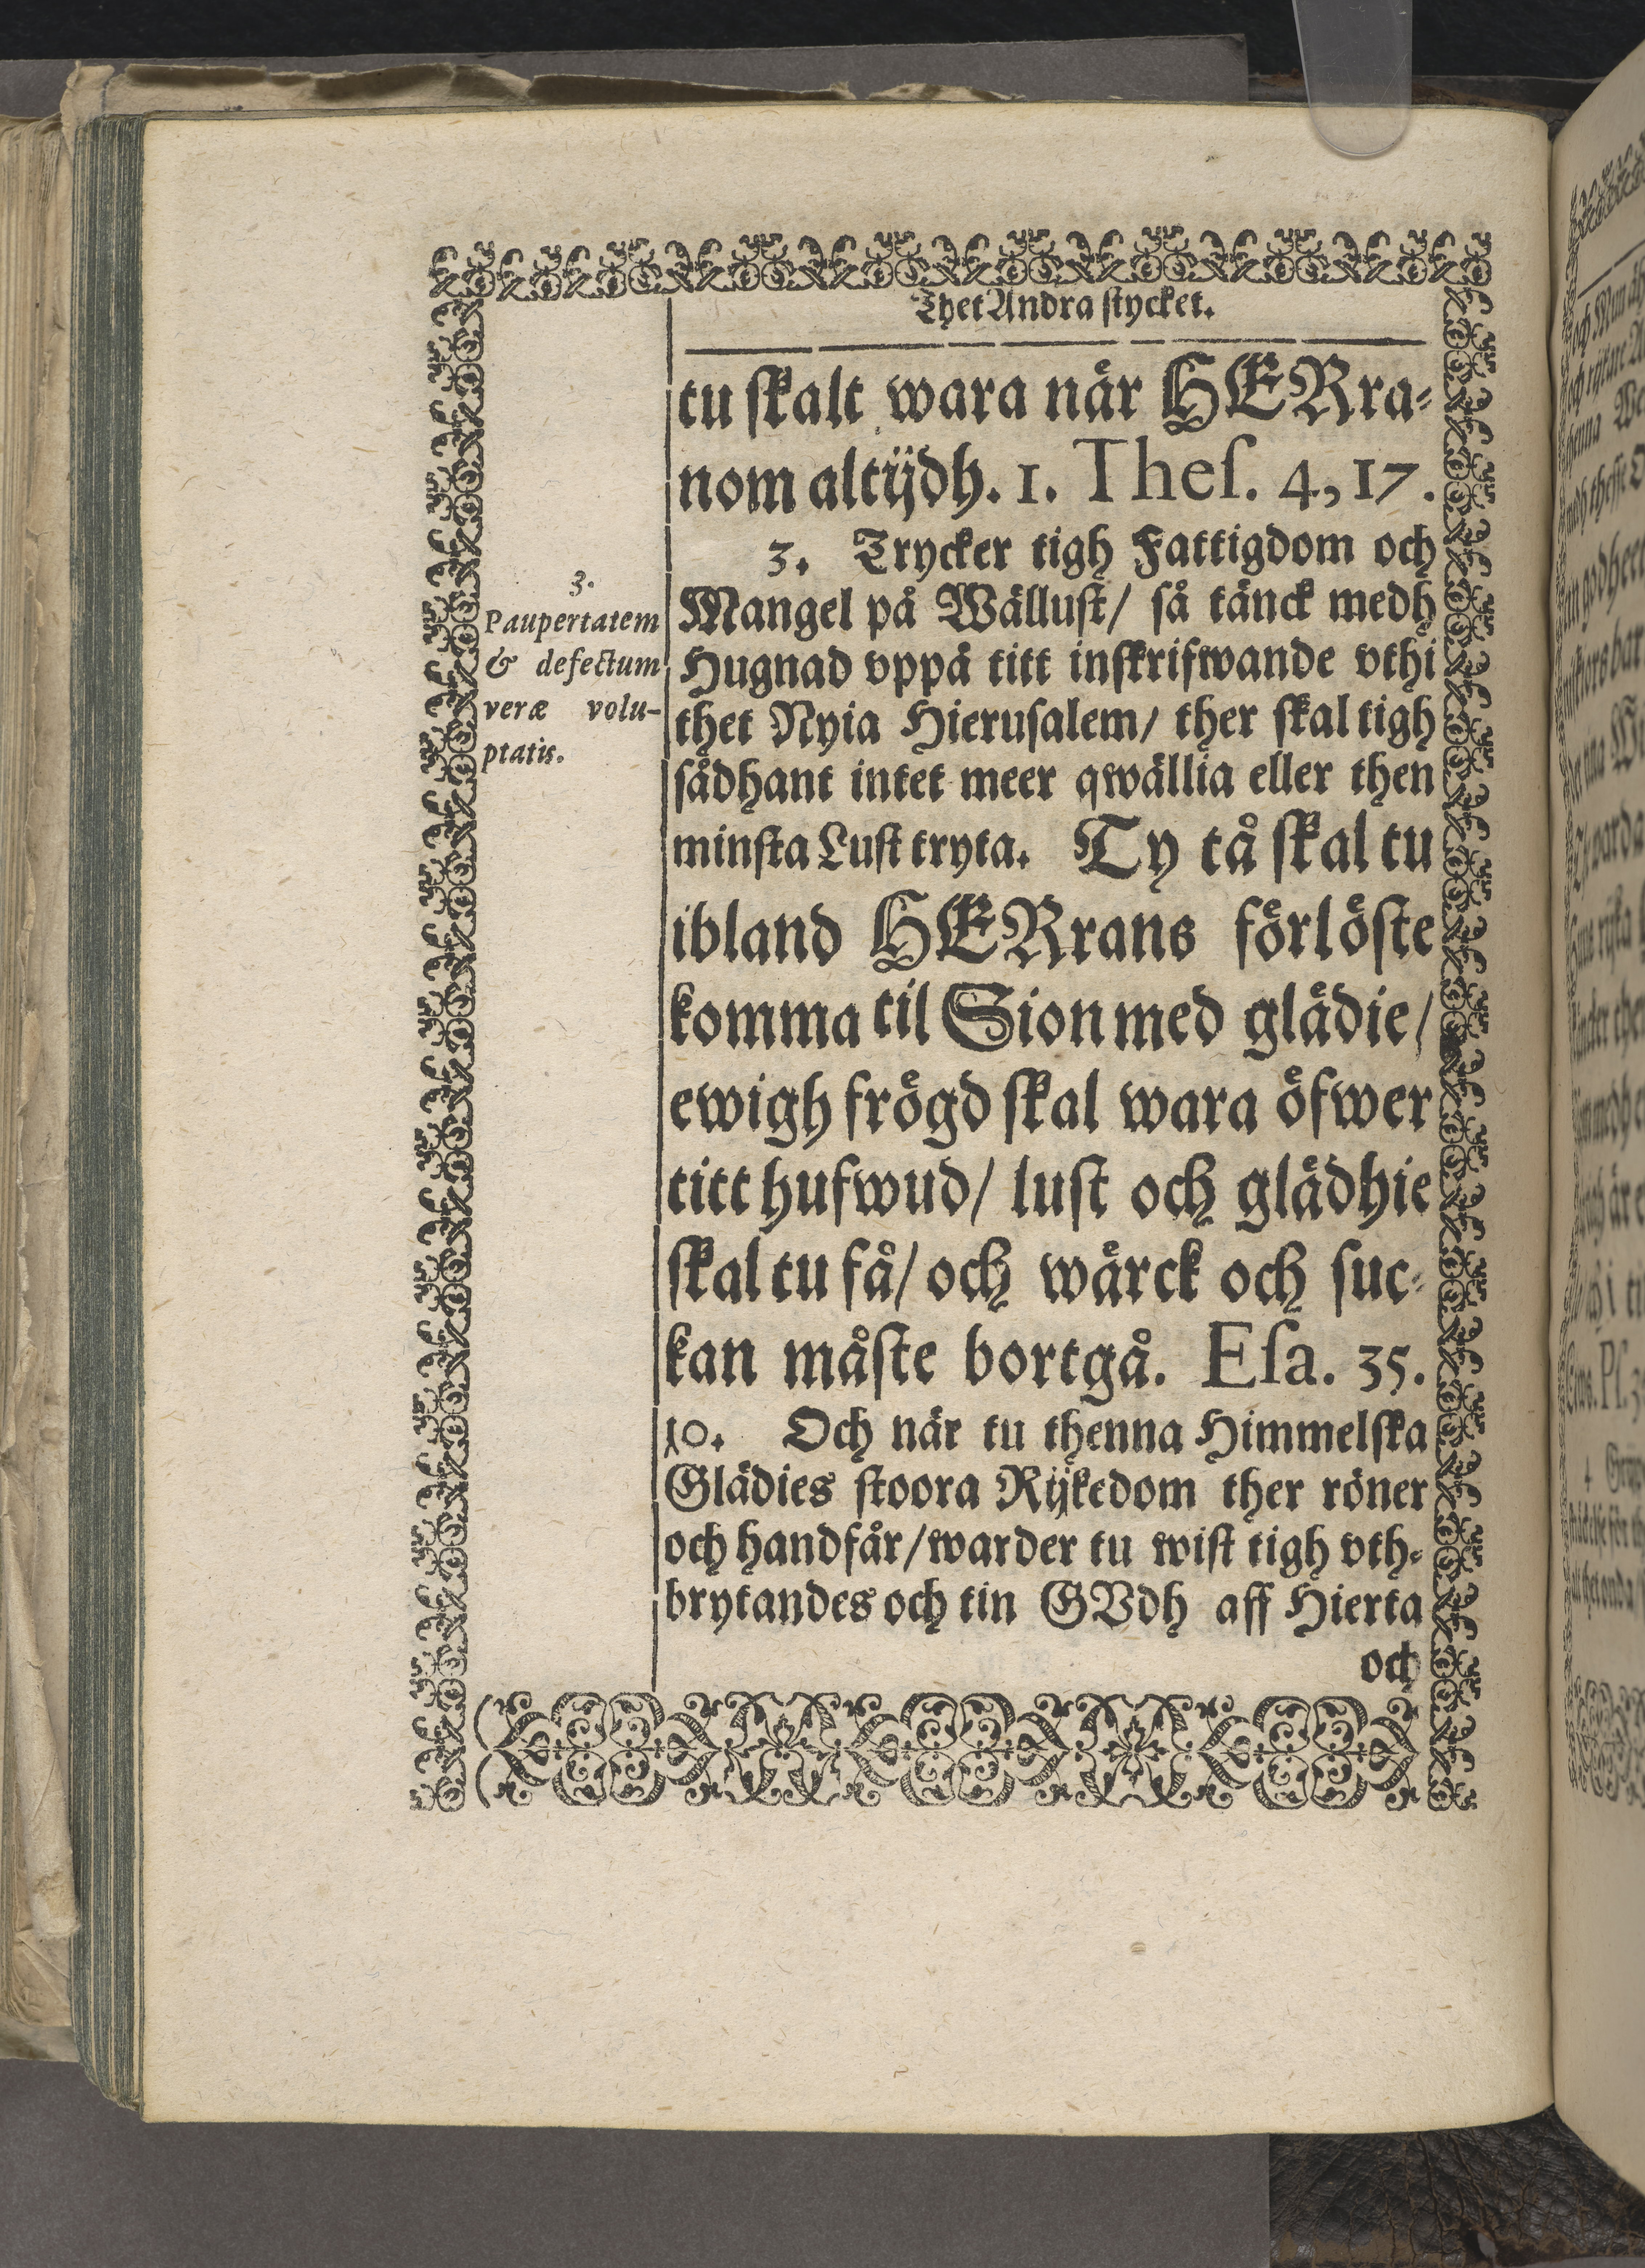 Thet Andra stycket.
tu skalt wara när HERra-
nom altijdh. 1. Thes. 4, 17.
3. Trycker tigh Fattigdom och
Mangel på Wällust/ så tänck medh
Hugnad vppå titt inskrifwande vthi
thet Nyia Hierusalem/ ther skal tigh
sådhant intet meer qwällia eller then
minsta Lust tryta. Ty tå skal tu
ibland HERrans förlöste
komma til Sion med glädie/
ewigh frögd skal wara öfwer
titt hufwud/ lust och glädhie
skal tu få/ och wärck och suc-
kan måste bortgå. Esa. 35.
10. Och när tu thenna Himmelska
Glädies stoora Rijkedom ther röner
och handfår/ warder tu wist tigh vth-
brytandes och tin GVdh aff Hierta
och
3.
Paupertatem
& defectum
veræ volu-
ptatis.